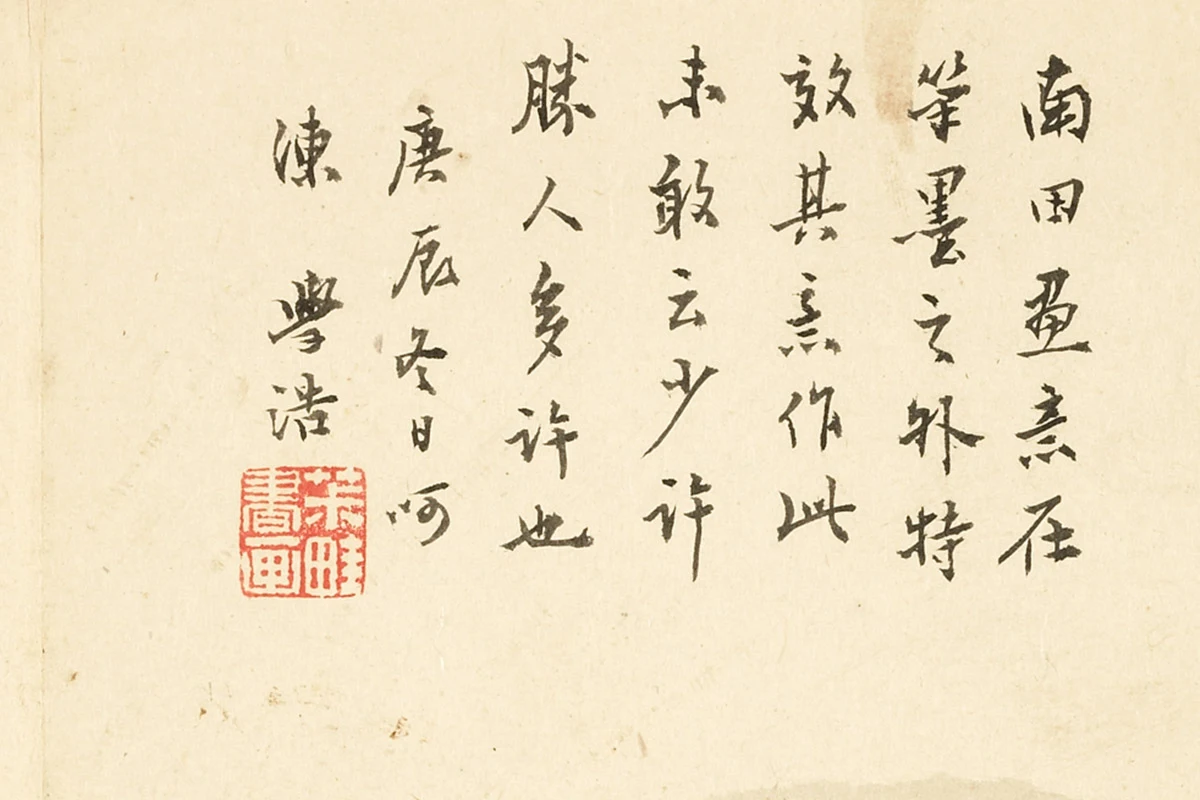 南田畫意在
筆墨之外特
效其意作此
未敢云少許
勝人多許也
庚辰冬日呵
凍 學浩
芙畦
書画